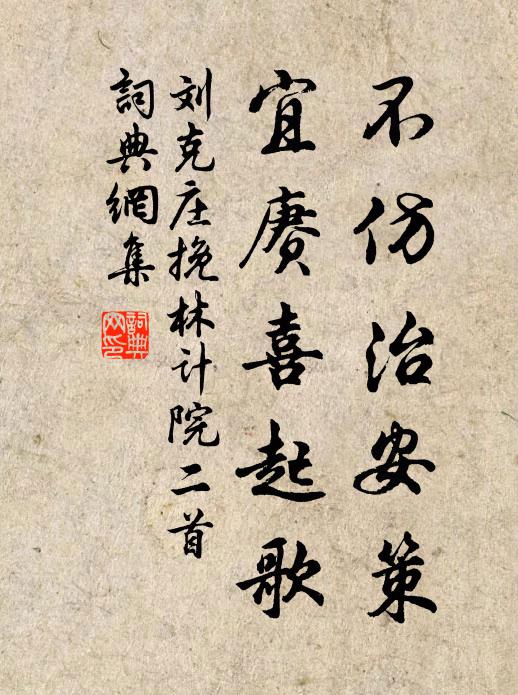 不仿治安策
宜赓喜起歌
刘克庄挽林计院二首
詞典網集
詞典
网印